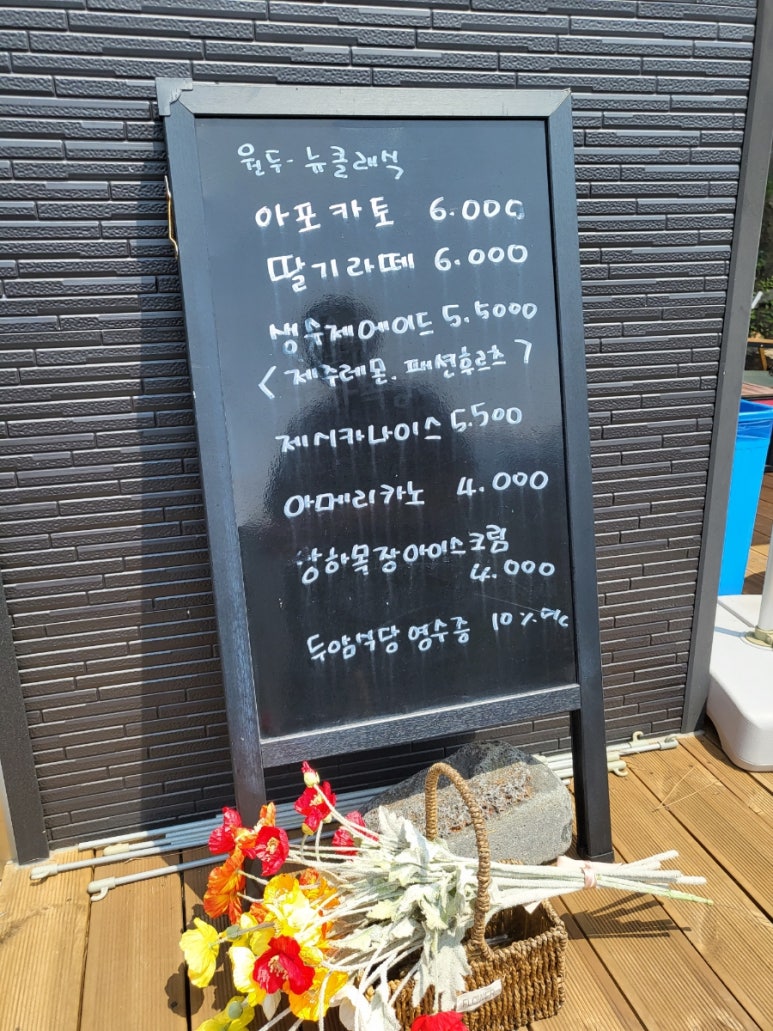 원두-뉴클래식
아포카토 6.000
딸기라떼 6.000
생수제에이드 5.5000
<제주레몬. 패션후르츠>
제시카나이스 5.500
아메리카노 4.000
상하목장아이스크림
4.000
두암식당 영수증 10% DC
FLOWER